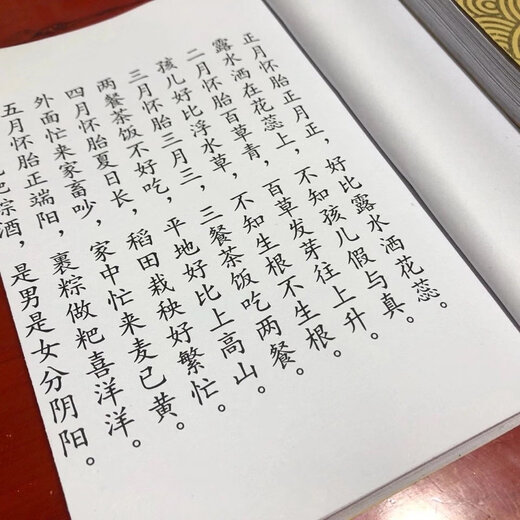 正月怀胎正月正，好比露水洒花蕊。
露水洒在花蕊上，不知孩儿假与真。
二月怀胎百草青，百草发芽往上升。
孩儿好比浮水草，不知生根不生根。
三月怀胎三月三，三餐茶饭吃两餐。
两餐茶饭不好吃，平地好比上高山。
四月怀胎夏日长，稻田栽秧好繁忙。
外面忙来家畜吵，家中忙来麦已黄。
五月怀胎正端阳，裹粽做粑喜洋洋。
粽酒，是男是女分阴阳。